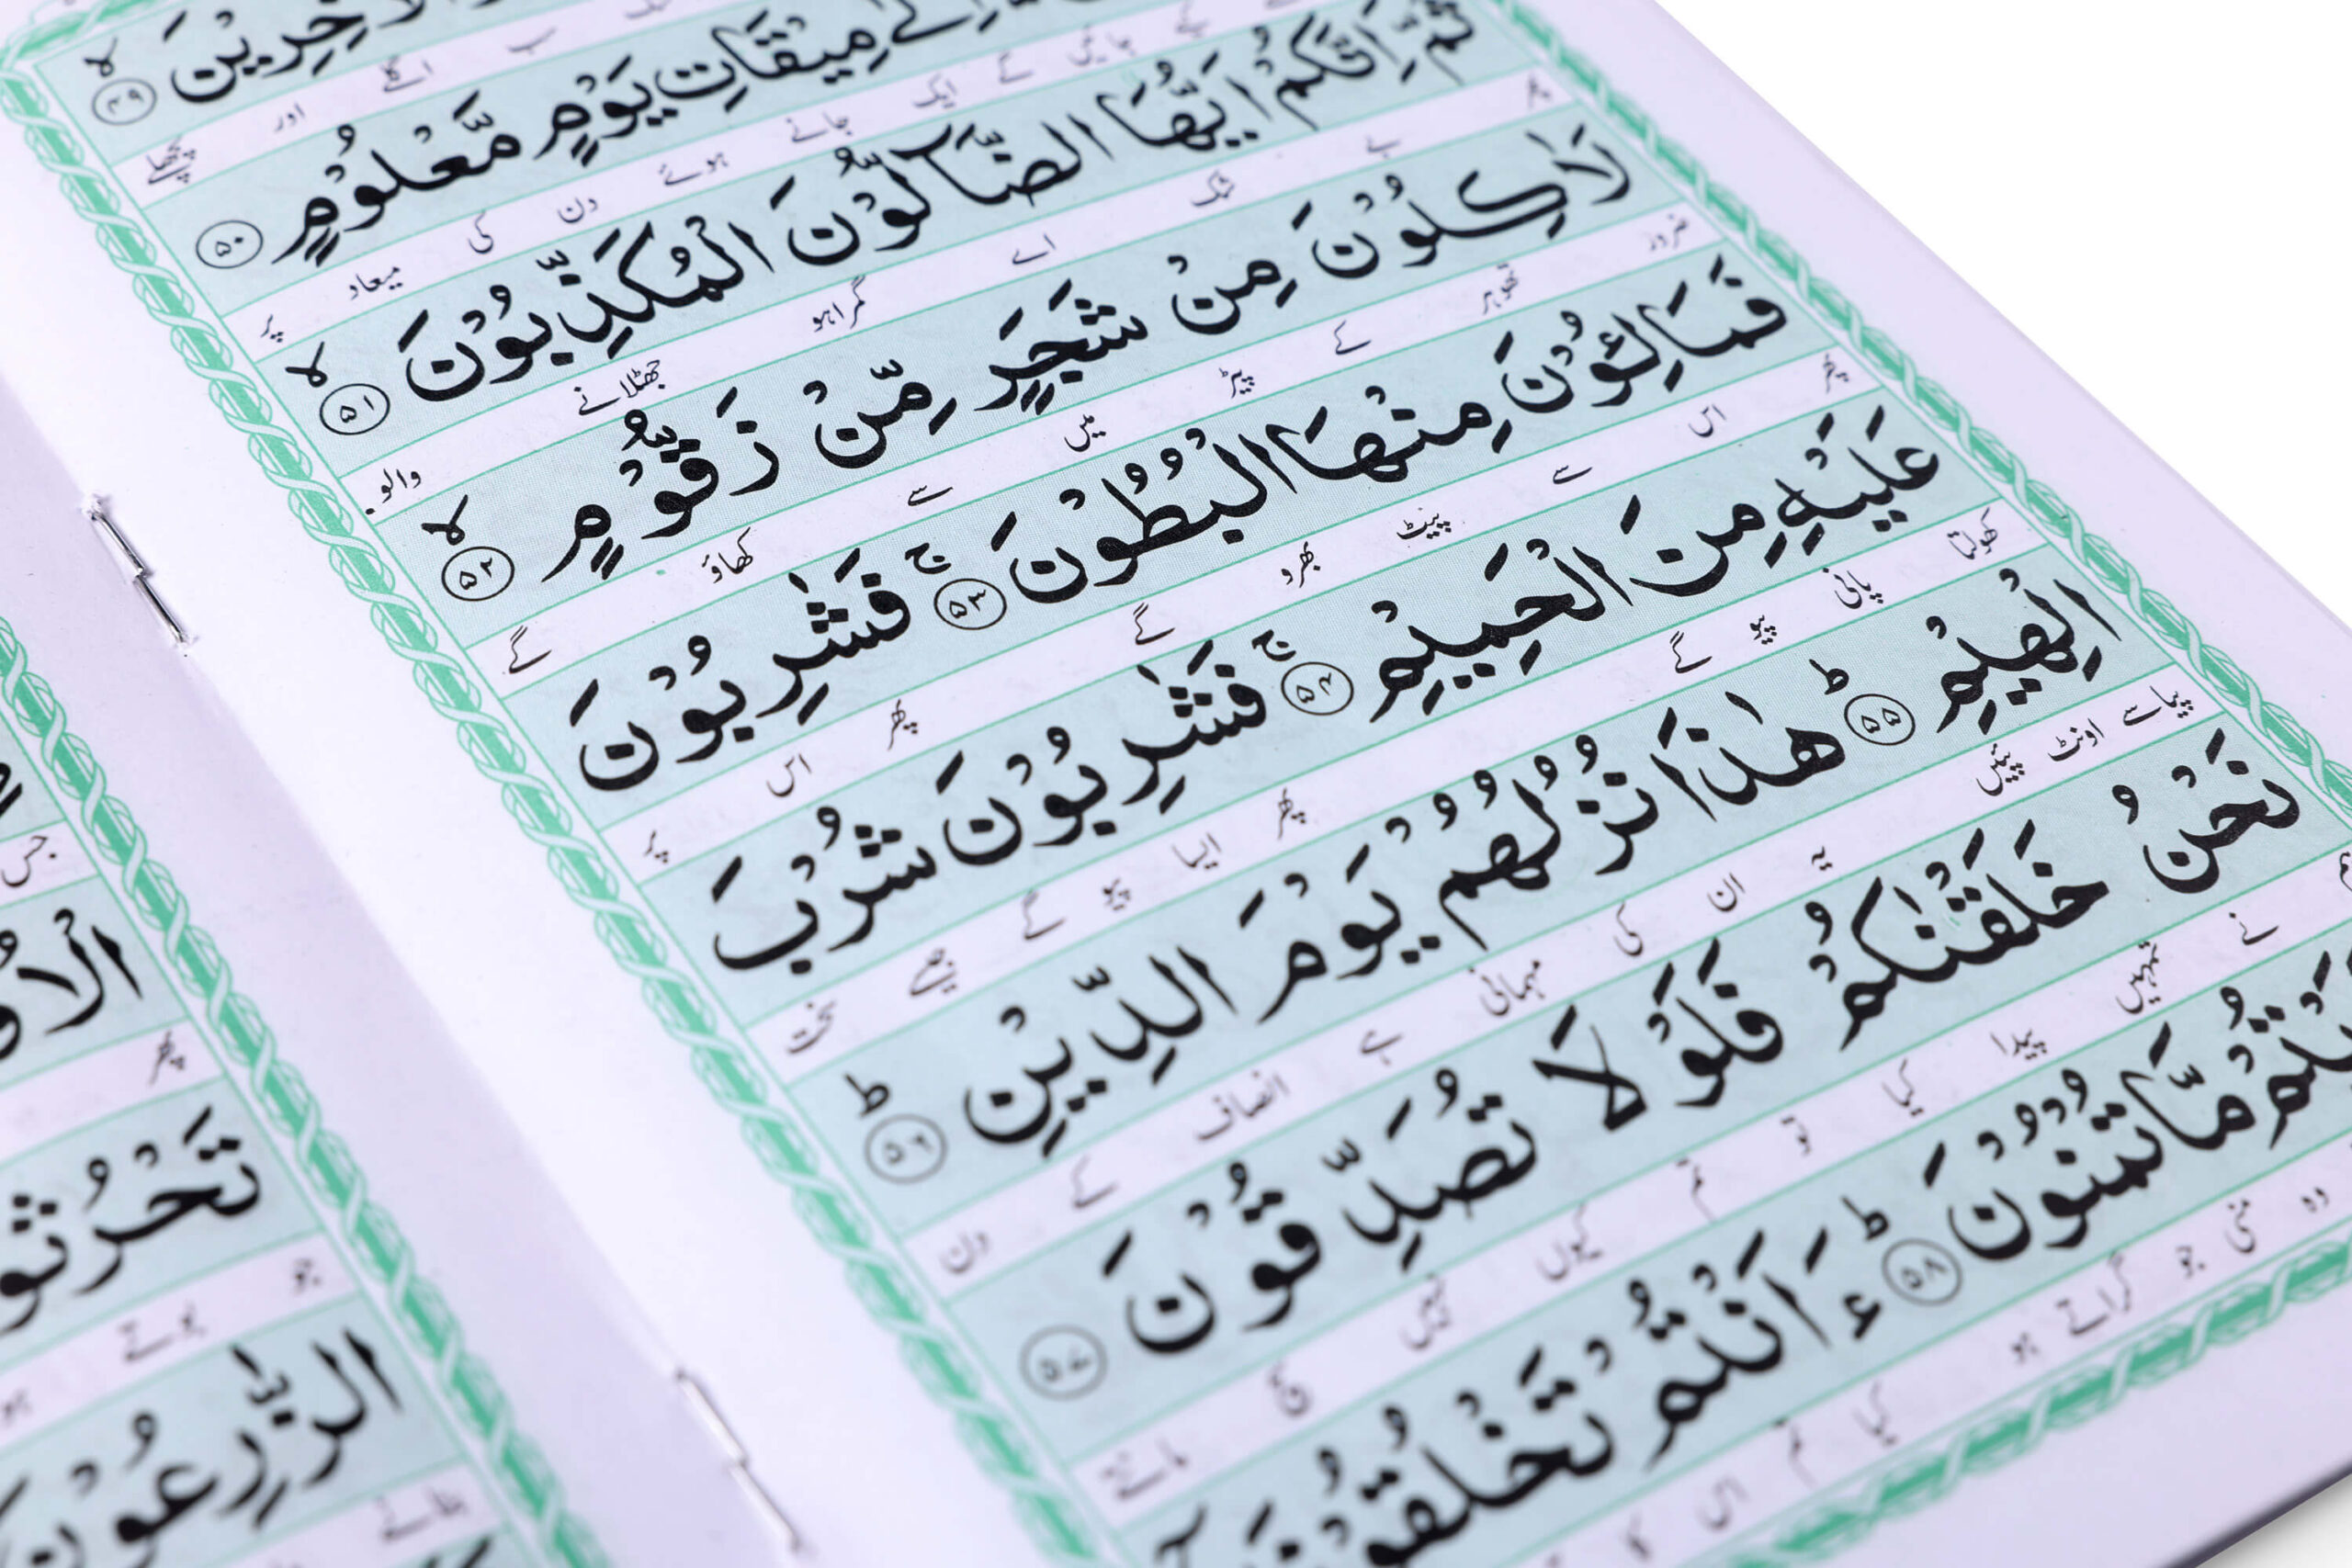 وَالْاٰخِرِيْنَ ۙ‏ ﴿۴۹﴾
اور
اِلٰى مِيْقَاتِ يَوْمٍ مَّعْلُوْمٍ ﴿۵۰﴾
جائیں گے ایک جانے ہوئے دن کی میعاد پر
ثُمَّ اِنَّكُمْ اَيُّهَا الضَّآلُّوْنَ الْمُكَذِّبُوْنَ ۙ ﴿۵۱﴾
پھر بے شک اے گمراہو جھٹلانے والو
لَاٰكِلُوْنَ مِنْ شَجَرٍ مِّنْ زَقُّوْمٍ ۙ ﴿۵۲﴾
ضرور تھوہر کے پیڑ میں سے کھاؤ گے
فَمَالِئُوْنَ مِنْهَا الْبُطُوْنَ ۚ ﴿۵۳﴾ فَشٰرِبُوْنَ
پھر اس سے پیٹ بھرو گے پھر اس پر
عَلَيْهِ مِنَ الْحَمِيْمِ ۚ ﴿۵۴﴾ فَشٰرِبُوْنَ شُرْبَ
کھولتا پانی پیو گے پھر ایسا پیو گے جیسے سخت
الْهِيْمِ ؕ ﴿۵۵﴾ هٰذَا نُزُلُهُمْ يَوْمَ الدِّيْنِ ؕ ﴿۵۶﴾
پیاسے اونٹ پئیں یہ ان کی مہمانی ہے انصاف کے دن
نَحْنُ خَلَقْنٰكُمْ فَلَوْلَا تُصَدِّقُوْنَ ﴿۵۷﴾
ہم نے تمہیں پیدا کیا تو تم کیوں نہیں سچ مانتے
مَّا تُمْنُوْنَ ؕ ﴿۵۸﴾ ءَاَنْتُمْ تَخْلُقُوْنَهٗۤ
وہ منی جو گراتے ہو کیا تم اس کا
جس
پھر
تَحْرُثُوْنَ
جو بوتے
الزّٰرِعُوْنَ
بنانے